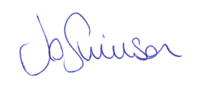 Jo Swinson